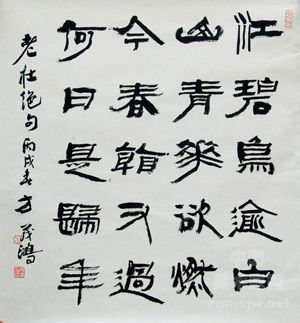 江碧鳥逾白
山青華欲燃
今春看又過
何日是歸年
老杜絕句丙戌春方茂鴻
zgmsjw.net